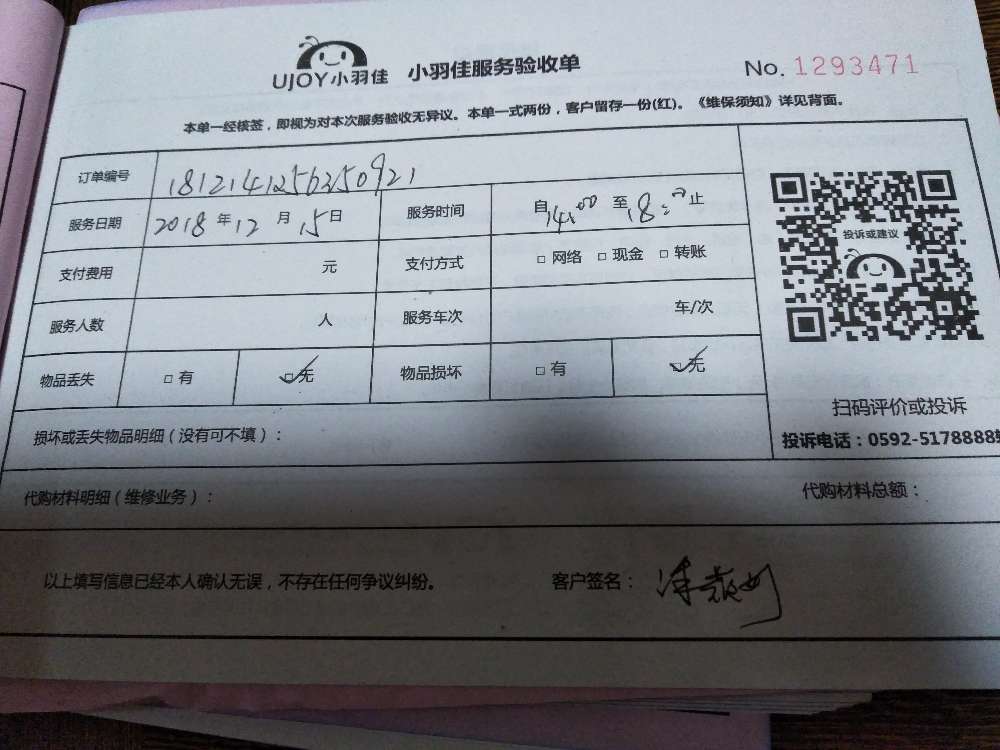 UJOY小羽佳 小羽佳服务验收单 No. 1293471
本单一经核签，即视为对本次服务验收无异议。本单一式两份，客户留存一份(红)。《维保须知》详见背面。
订单编号 1812141256350921
服务日期 2018 年 12 月 15 日 服务时间 自 14:00 至 18:00 止
投诉或建议
支付费用 元 支付方式 □ 网络 □ 现金 □ 转账
服务人数 人 服务车次 车/次
物品丢失 □ 有 □ 无 物品损坏 □ 有 □ 无
扫码评价或投诉
损坏或丢失物品明细（没有可不填）：
投诉电话：0592-5178888
代购材料明细（维修业务）： 代购材料总额：
以上填写信息已经本人确认无误，不存在任何争议纠纷。 客户签名：